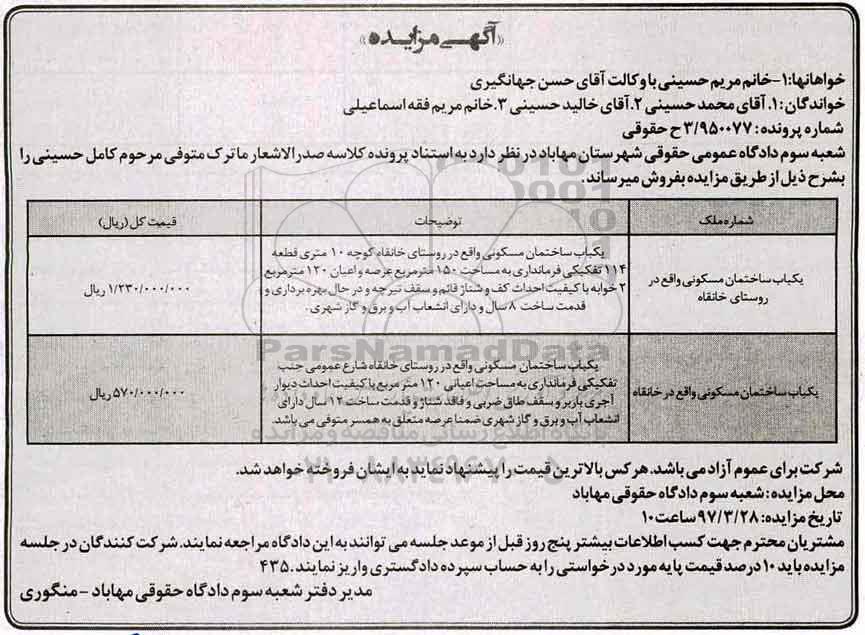 «آگهی مزایده»
خواهانها: ۱-خانم مریم حسینی با وکالت آقای حسن جهانگیری
خواندگان: ۱. آقای محمد حسینی ۲. آقای خالید حسینی ۳. خانم مریم فقه اسماعیلی
شماره پرونده: ۳/۹۵۰۰۷۷ ح حقوقی
شعبه سوم دادگاه عمومی حقوقی شهرستان مهاباد در نظر دارد به استناد پرونده کلاسه صدرالاشعار ماترک متوفی مرحوم کامل حسینی را
بشرح ذیل از طریق مزایده بفروش میرساند.
شماره ملک
توضیحات
قیمت کل (ریال)
یکباب ساختمان مسکونی واقع در
روستای خانقاه
یکباب ساختمان مسکونی واقع در روستای خانقاه کوچه ۱۰ متری قطعه
۱۱۴ تفکیکی فرمانداری به مساحت ۱۵۰ مترمربع عرصه و اعیان ۱۲۰ مترمربع
۲ خوابه با کیفیت احداث کف و شناژ قائم و سقف تیرچه و در حال بهره برداری و
قدمت ساخت ۸ سال و دارای انشعاب آب و برق و گاز شهری.
۱/۲۳۰/۰۰۰/۰۰۰ ریال
یکباب ساختمان مسکونی واقع در خانقاه
یکباب ساختمان مسکونی واقع در روستای خانقاه شارع عمومی جنب
تفکیکی فرمانداری به مساحت اعیانی ۱۲۰ متر مربع با کیفیت احداث دیوار
آجری باربر و سقف طاق ضربی و فاقد شناژ و قدمت ساخت ۱۲ سال دارای
انشعاب آب و برق و گاز شهری ضمنا عرصه متعلق به همسر متوفی می باشد.
۵۷۰/۰۰۰/۰۰۰ ریال
شرکت برای عموم آزاد می باشد. هرکس بالاترین قیمت را پیشنهاد نماید به ایشان فروخته خواهد شد.
محل مزایده: شعبه سوم دادگاه حقوقی مهاباد
تاریخ مزایده: ۹۷/۳/۲۸ ساعت ۱۰
مشتریان محترم جهت کسب اطلاعات بیشتر پنج روز قبل از موعد جلسه می توانند به این دادگاه مراجعه نمایند. شرکت کنندگان در جلسه
مزایده باید ۱۰ درصد قیمت پایه مورد درخواستی را به حساب سپرده دادگستری واریز نمایند. ۴۳۵
مدیر دفتر شعبه سوم دادگاه حقوقی مهاباد - منگوری
ParsNamadData